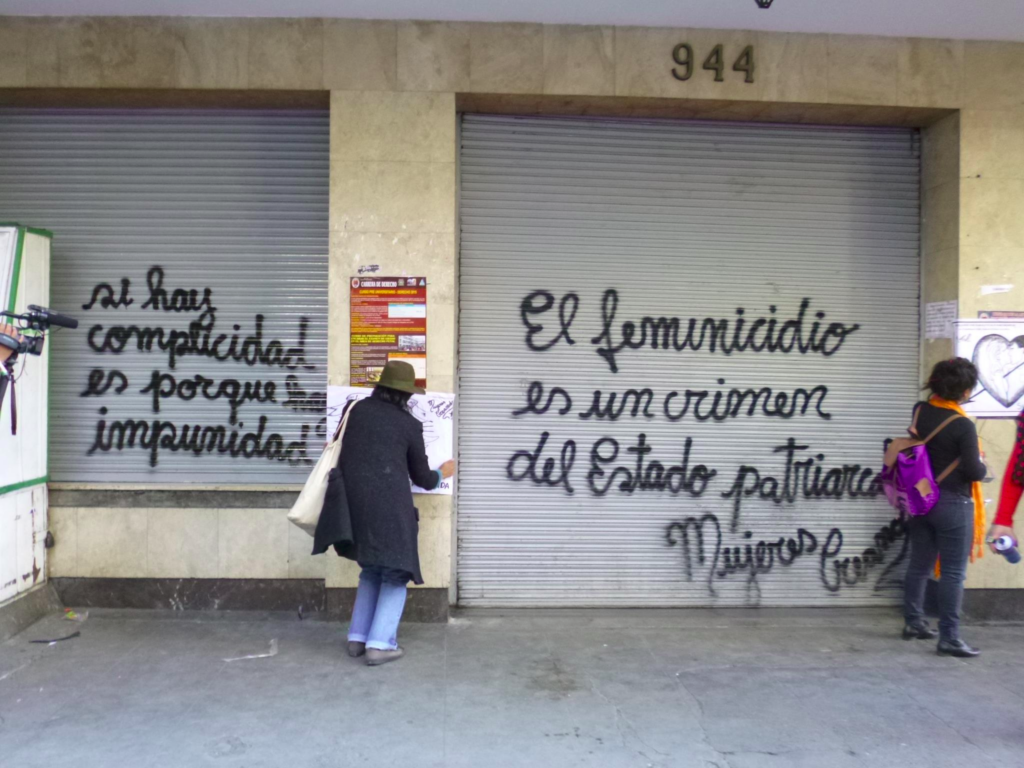 944
si hay
complicidad
es porque hay
impunidad
CARRERA DE DERECHO
El feminicidio
es un crimen
del Estado patriarcal
Mujeres Creando